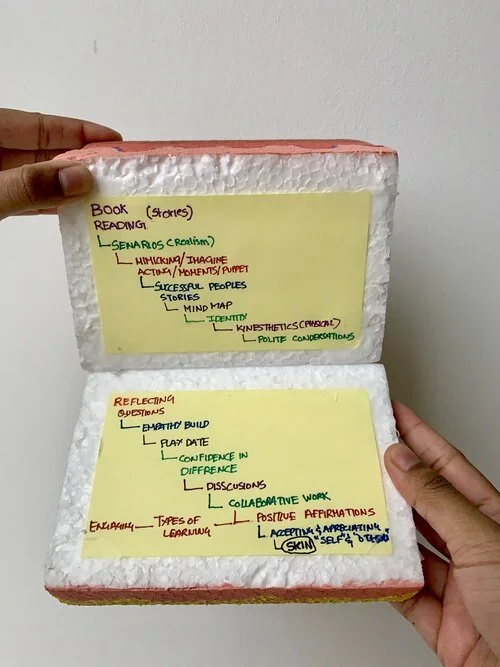 BOOK (Stories)
READING
SENARIOS (Realism)
MIMICKING/IMAGINE
ACTING/MOMENTS/PUPPET
SUCCESSFUL PEOPLES
STORIES
MIND MAP
IDENTITY
KINESTHETICS (PHYSICAL)
POLITE CONVERSATIONS
REFLECTING
QUESTIONS
EMPATHY BUILD
PLAY DATE
CONFIDENCE IN
DIFFRENCE
DISSCUSIONS
COLLABORATIVE WORK
ENGAGING TYPES OF POSITIVE AFFIRMATIONS
LEARNING ACCEPTING & APPRECIATING
SKIN "SELF" & "OTHERS"